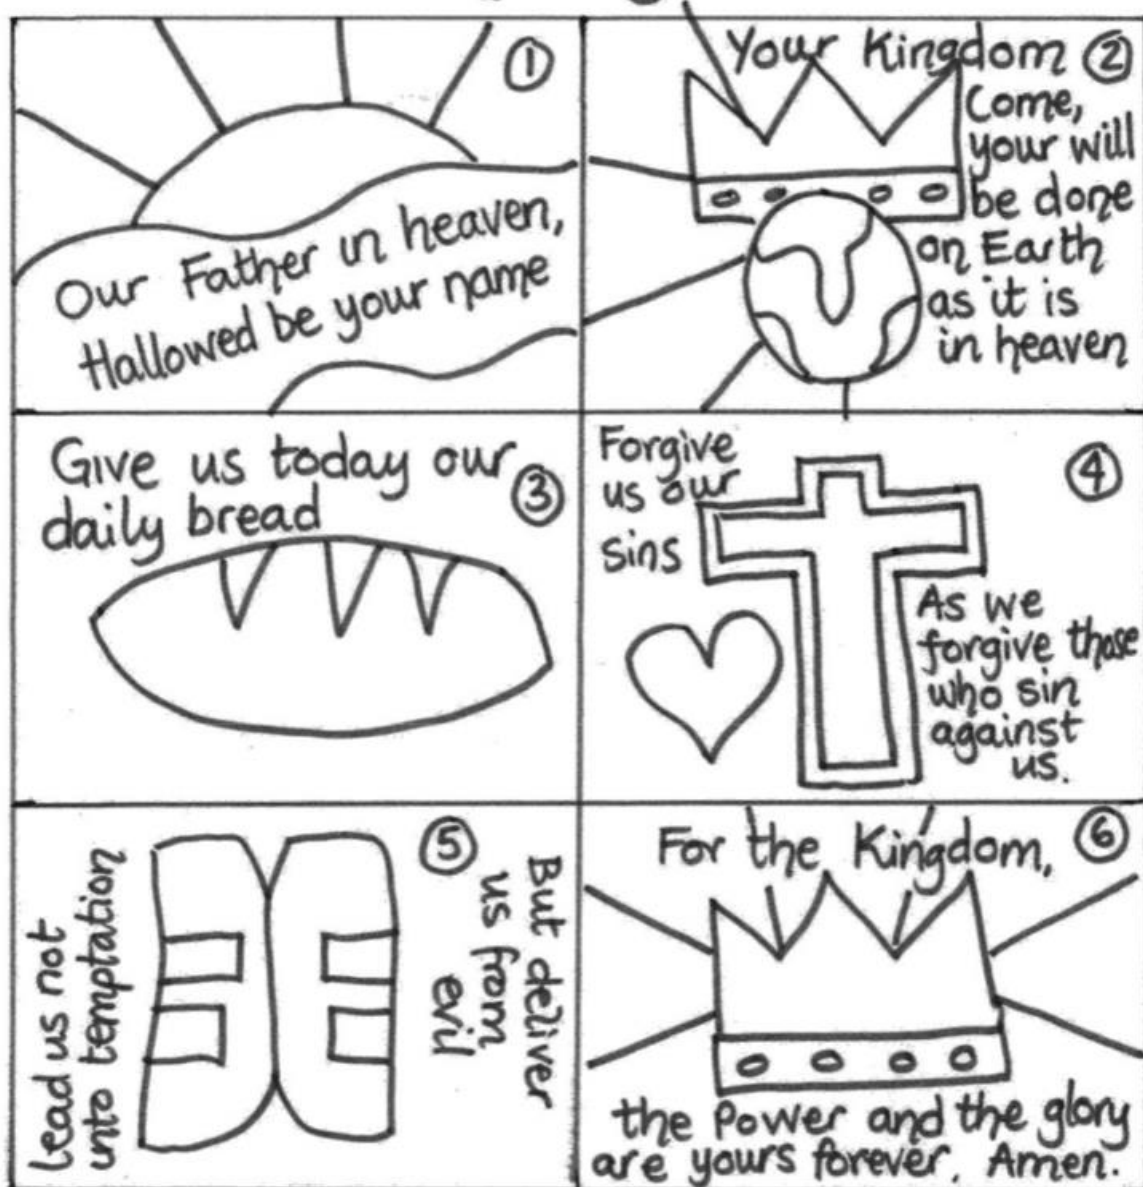 ①
Our Father in heaven,
Hallowed be your name
Your Kingdom ②
Come,
your will
be done
on Earth
as it is
in heaven
Give us today our
daily bread ③
Forgive
us our
sins
④
As we
forgive those
who sin
against
us.
⑤
Lead us not
into temptation
But deliver
us from
evil
For the Kingdom, ⑥
the Power and the glory
are yours forever. Amen.